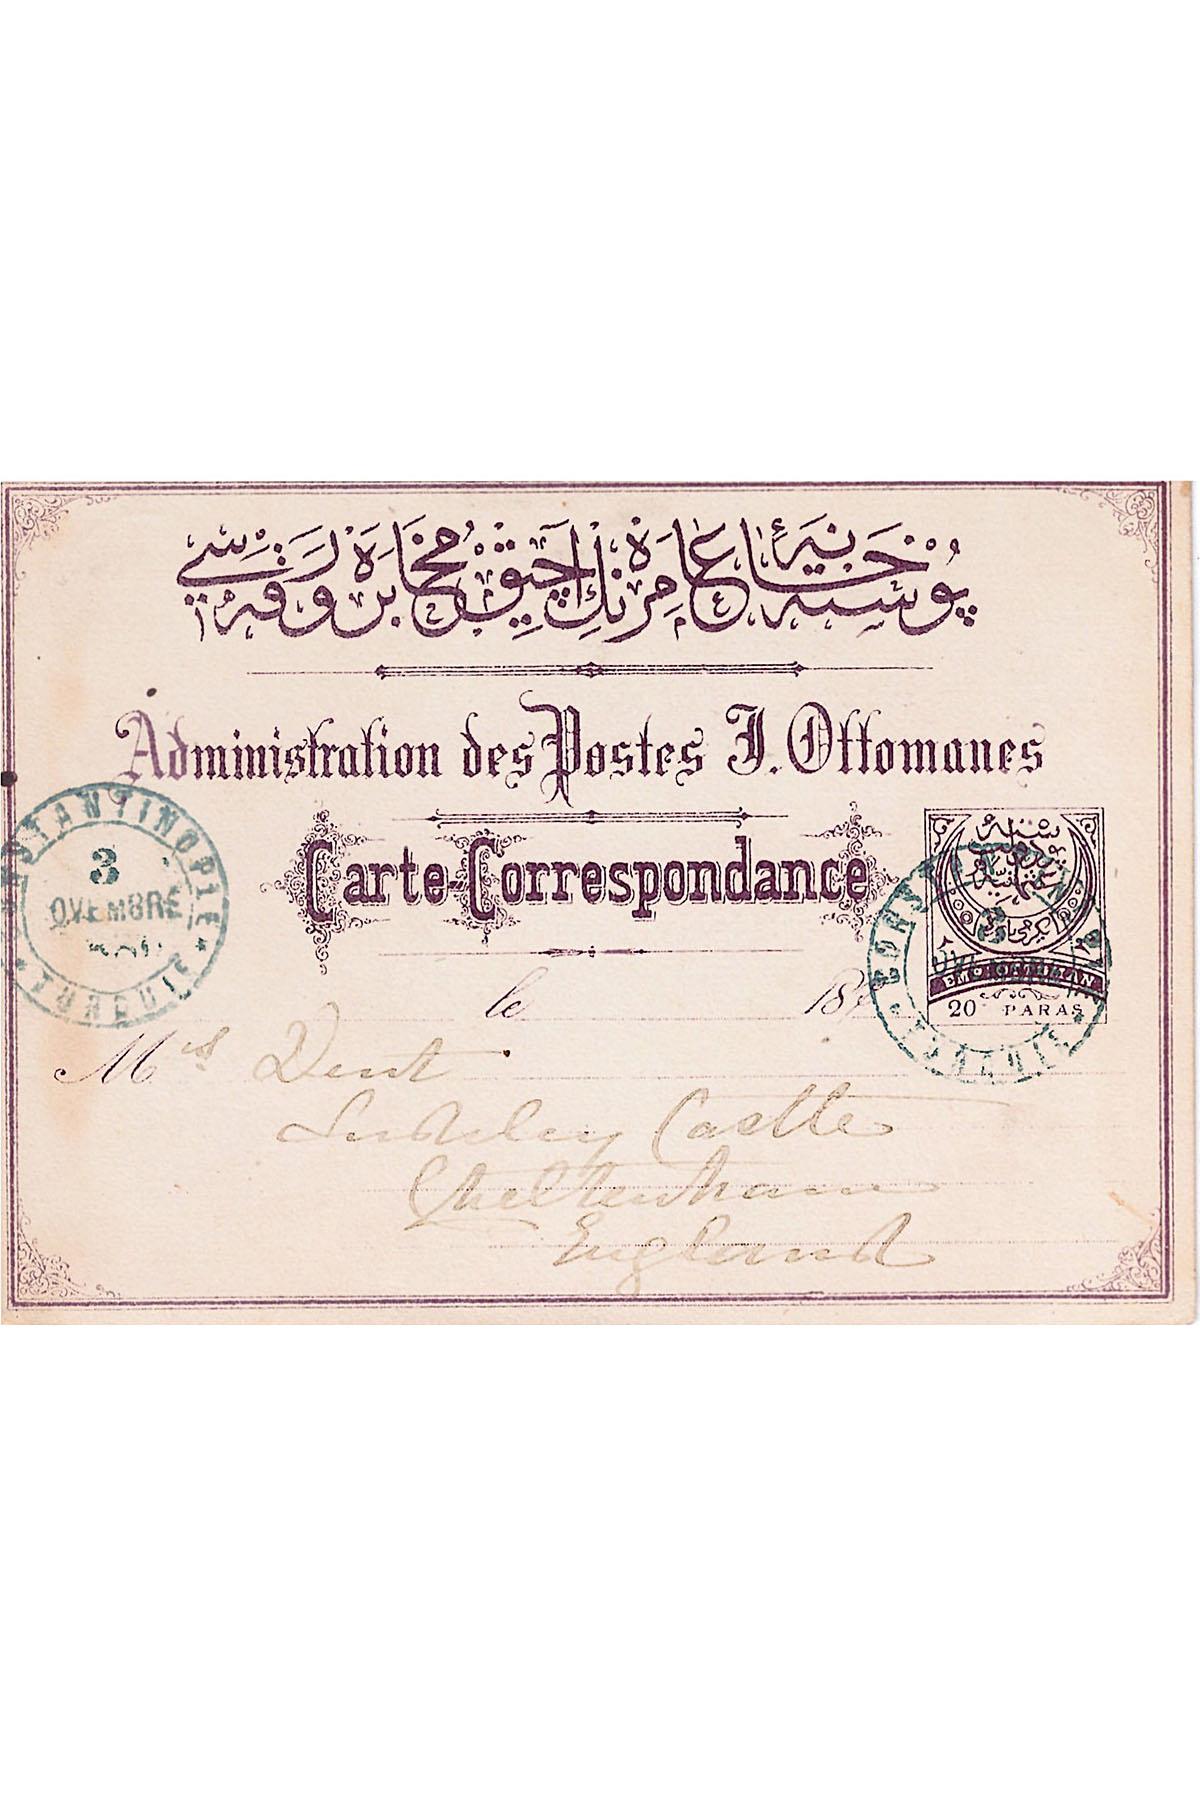 پوسته خانهٔ عامره نك آچيق مخابره ورقه سی
Administration des Postes I. Ottomanes
Carte-Correspondance
CONSTANTINOPLE
3
OVEMBRE
EMP. OTTOMAN
20 PARAS
le 18
Mrs Dent
Sudeley Castle
Cheltenham
England